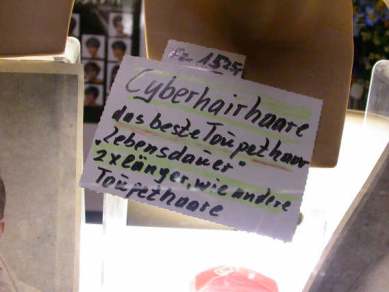 Cyberhairhaare
das beste Toupethaar
Lebensdauer"
2x länger, wie andere
Toupethaare